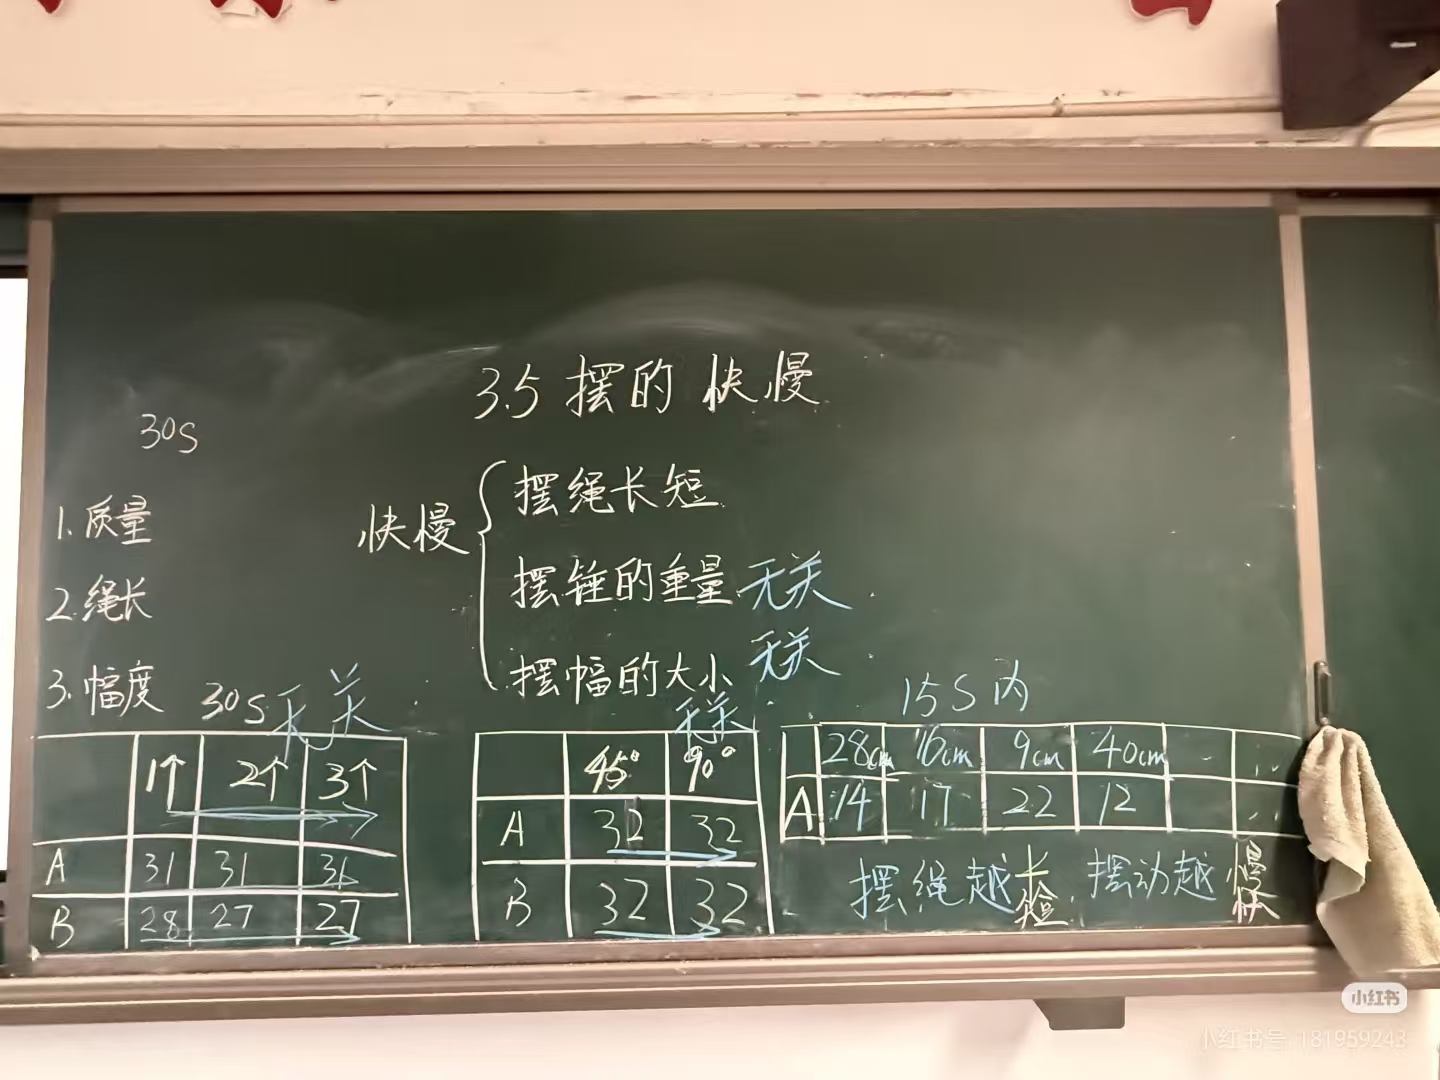 3.5 摆的快慢
30S
1.质量
2.绳长
3.幅度
快慢
摆绳长短
摆锤的重量 无关
摆幅的大小 无关
30S 无关
1个 2个 3个
A 31 31 31
B 28 27 27
无关
45° 90°
A 32 32
B 32 32
15S内
28cm 16cm 9cm 40cm
A 14 17 22 12
摆绳越长 摆动越慢
短 快
小红书
小红书号:181959243